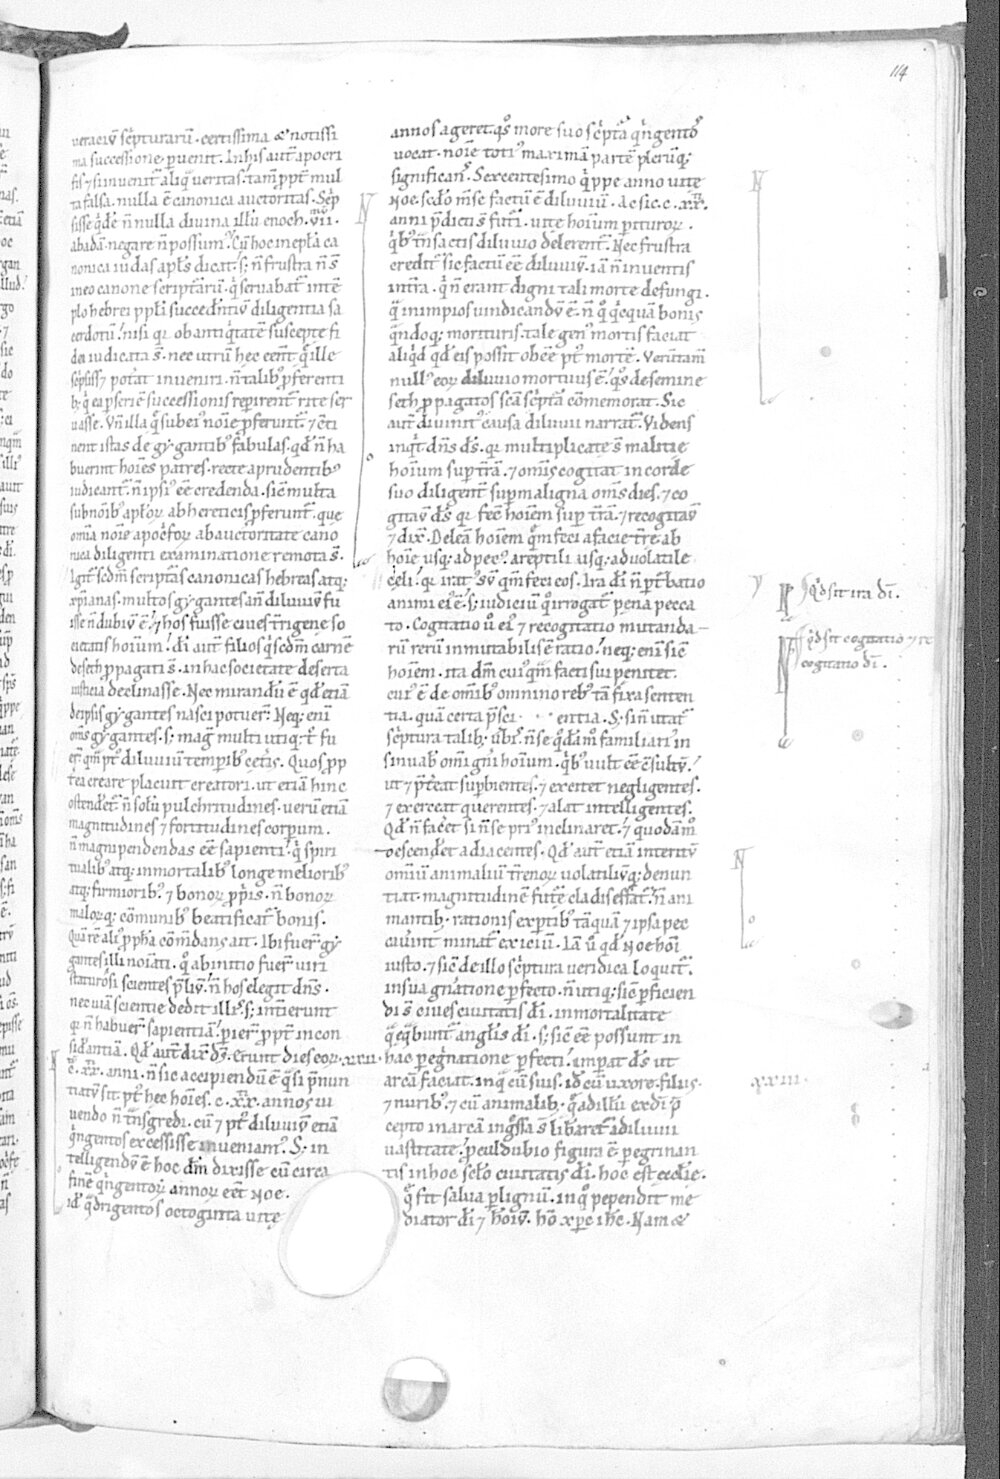 114
ueraciū sc̄pturarū. certissima & notissi
ma successione ꝑuenit. In his aut̄ apocri
fis ⁊ si inuenit̄ aliq̄ ueritas. tam̄ ꝓpt̄ mul
ta falsa. nulla ē canonica auctoritas. Sc̄p
sisse q̇dē n̄ nulla diuina illū enoch. vii.
abadā. negare n̄ possum᷒. Cū hoc in ep̄la ca
nonica iudas apl̄s dicat. s; n̄ frustra n̄ s̄
in eo canone scriptarū. q̇ seruabat̄ in tē
plo hebrei ppl̄i succedentiū diligentia sa
cerdotū. nisi qꝛ ob antiq̇tatē suscepte fi
dei iudicata s̄. nec utrū hec eent̄ q̄ ille
sc̄psiss⁊ potat̄ inueniri. n̄ talib᷒ ꝓferenti
b; q̇ ea ꝑ seriē successionis reꝑirent̄ rite ser
uasse. Vn̄ illa q̄ sub ei᷒ noīe ꝓferunt̄. ⁊ cōti
nent istas de gygantib᷒ fabulas. qd̄ n̄ ha
buerint hoīes patres. recte a prudentib᷒
iudicant̄. n̄ ipsi᷒ eē credenda. sic̄ multa
sub noīb᷒ apl̄oꝝ ab hereticis ꝓferunt̄. que
omīa noīe apoc̄foꝝ ab auctoritate cano
nica diligenti examinatione remota s̄.
Igit̄ scd̄m scripturas canonicas hebreas atq;
xp̄ianas. multos gygantes an̄ diluuiū fu
isse n̄ dubiū ē. ⁊ hos fuisse ciues t̄rigene so
cietatis hoīum. dī aut̄ filios q̇ scd̄m carnē
de seth ꝓpagati s̄. in hac societate deserta
iusticia declinasse. Nec mirandū ē qd̄ etiā
de ipsis gygantes nasci potuer̄. Neq; enī
om̄s gygantes. s; maḡ multi utiq; t̄ fu
er̄. q̄m pt᷒ diluuiū temporib᷒ cet̄is. Quos ꝓp
t̄ea creare placuit creatori. ut etiā hinc
ostenderet̄ n̄ solū pulchritudines. uerū etiā
magnitudines ⁊ fortitudines corporum.
n̄ magnipendendas eē sapienti. q̇ spiri
tualib᷒ atq; inmortalib᷒ longe meliorib᷒
atq; firmiorib᷒. ⁊ bonoꝝ ꝓp̄is. n̄ bonoꝝ
maloꝝq; cōmunib᷒ beatificat̄ bonis.
Quā rē ali᷒ ꝓph̄a cōmdans ait. Ibi fuer̄ gy
gantes illi noīati. q̇ ab initio fuer̄ uiri
staturosi scientes p̄liū. n̄ hos elegit dn̄s.
nec uiā scientie dedit illis. s; int̄ierunt
qꝛ n̄ habuer̄ sapientiā. ꝑier̄ ꝓpt̄ incon
sid̄antiā. Qd̄ aut̄ dix̄ ds̄. Erunt dies eoꝝ. xxii.
c̄. xx. anni. n̄ sic accipiendū ē q̇si p̄nun
tiatū sit. pt᷒ hec hoīes. c. xx. annos ui
uendo n̄ t̄nsgredi. cū ⁊ pt᷒ diluuiū etiā
q̇ngentos excessisse inueniam᷒. S; in
telligendū ē hoc dm̄ dixisse cū circa
finē q̇ngentoꝝ annoꝝ eēt Noe.
id̄ q̇dringentos octoginta uite
annos ageret. q̇s more suo sc̄pta q̇ngentos
uocat. noīe toti᷒ maximā partē pleruq;
significans. Sexcentesimo q̇ppe anno uite
Noe. scd̄o mse factū ē diluuiū. Ac sic. c. xx.
anni p̄dicti s̄ futi. uite hoīum ꝑituroꝝ.
q̇b᷒ t̄nsactis diluuio delerent̄. Nec frustra
credit̄ sic factū ēē diluuiū. iā n̄ inuentis
in t̄ra. q̇ n̄ erant digni tali morte defungi.
q̄ in impios uindicandū ē. n̄ q̄ q̇cquā bonis
q̇ndoq; morituris. tale gen᷒ mortis faciat
aliq̇d qd̄ eis possit obēē pt᷒ mortē. Verūtam̄
null᷒ eoꝝ diluuio mortuus ē. q̇s de semine
seth ꝓpagatos sc̄a sc̄pta cōmemorat. Sic
aut̄ diuinit᷒ causa diluuii narrat̄. Videns
inq̇t dn̄s ds̄. qꝛ multiplicate s̄ malitie
hoīum suꝑ t̄rā. ⁊ om̄is cogitat in corde
suo diligent̄ suꝑ maligna om̄s dies. ⁊ co
gitau̅ ds̄ qꝛ fec̄ hoīem suꝑ t̄rā. ⁊ recogitau̅
⁊ dix̄. Deleā hoīem q̇m feci a facie t̄re ab
hoīe usq; ad pec᷒. a reptili usq; ad uolatile
celi. qꝛ irat᷒ sū q̄m feci eos. Ira dī n̄ pt̄batio
animi ei᷒ ē. s; iudiciū q̇ irrogat̄ pena pecca
to. Cogitatio ū ea᷒ ⁊ recogitatio mutanda
rū rerū inmutabilis ē ratio. neq; enī sic̄
hoīem. ita dm̄ cui᷒q̄m facti sui penitet.
cui᷒ ē de om̄ib᷒ omnino reb᷒ tā fixa senten
tia. quā certa p̄sci entia. S; si n̄ utat̄
sc̄ptura talib; ūbis. n̄ se q̇dāmō familiari᷒ in
sinuab᷒ omi gn̄i hoīum. q̇b᷒ uult eē cōsultū.
ut ⁊ p̄t̄reat suꝑbientes. ⁊ excitet negligentes.
⁊ exerceat querentes. ⁊ alat intelligentes.
Qd̄ n̄ facet si n̄ se pri᷒ inclinaret. ⁊ quodāmō
descenderet ad iacentes. Qd̄ aut̄ etiā interitū
omiū animaliū t̄renoꝝ uolatiliūq; denun
tiat. magnitudinē futē cladis effat̄. n̄ ani
mantib; rationis exꝑtib᷒ tāquā ⁊ ipsa pec
cauint minat̄ exiciū. Iā ū qd̄ Noe hoī
iusto. ⁊ sic̄ de illo sc̄ptura ueridica loquit̄.
in sua gnatione ꝑfecto. n̄ utiq; sic̄ ꝑficien
di s̄ ciues ciuitatis dī. in mortalitate
q̄ eq̇bunt̄ anglis dī. s; sic̄ eē possunt in
hac ꝑeġnatione ꝑfecti. imꝑat ds̄ ut
arcā faciat. in q̄ cū suis. id̄ cū uxore. filiis.
⁊ nurib᷒. ⁊ cū animalib; q̄ ad illū ex dī p̄
cepto in arcā inġssa s̄ liberaret᷒ a diluuii
uastitate. ꝑculdubio figura ē ꝑegrinan
tis in hoc sclo ciuitatis dī. hoc est eccl̄ie.
q̄ fit salua ꝑ lignū. in q̇ pependit me
diator dī ⁊ hoīu̅. hō xp̄c ih̄c. Nam &
Qd̄ sit ira dī.
Qd̄ sit cogitatio ⁊ re
cogitatio dī.
xxiiii.